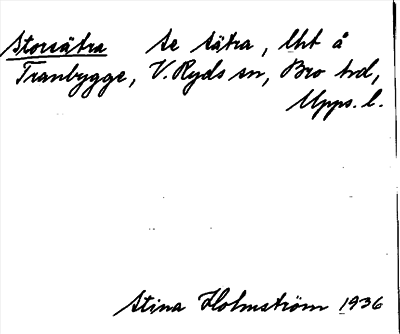 Storsätra se Sätra, lht å
Tranbygge, V. Ryds sn, Bro hd,
Upps. l.
Stina Holmström 1936